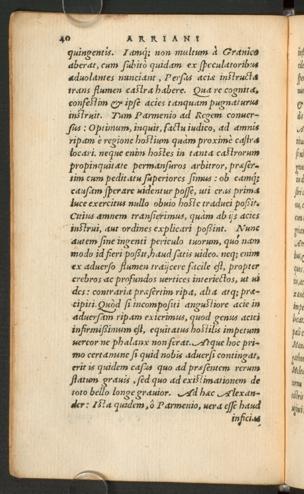 40 ARRIANI
quingentis. Iamq; non multum à Granico
aberat, cum subitò quidam ex speculatoribus
aduolantes nunciant, Persas acie instructa
trans flumen castra habere. Qua re cognita,
confestim & ipse acies tanquam pugnaturus
instruit. Tum Parmenio ad Regem conuer-
sus: Optimum, inquit, factu iudico, ad amnis
ripam è regione hostium quam proximè castra
locari. neque enim hostes in tanta castrorum
propinquitate permansuros arbitror, præser-
tim cum peditatu superiores simus: ob eamq;
causam sperare uidentur posse, uti cras prima
luce exercitus nullo obuio hoste traduci possit.
Citius amnem transierimus, quàm ab ijs acies
instrui, aut ordines explicari possint. Nunc
autem sine ingenti periculo tuorum, quo nam
modo id fieri possit, haud satis uideo. neq; enim
ex aduerso flumen traijcere facile est, propter
crebros ac profundos uertices interiectos, ut ui
des: contraria præsertim ripa, alta atq; præ-
cipiti. Quòd si incompositi angustiore acie in
aduersam ripam exierimus, quod genus aciei
infirmissimum est, equitatus hostilis impetum
uereor ne phalanx non ferat. Atque hoc pri-
mo certamine si quid nobis aduersi contingat,
erit is quidem casus quo ad præsentem rerum
statum grauis, sed quo ad existimationem de
toto bello longe grauior. Ad hæc Alexan-
der: Ista quidem, ô Parmenio, uera esse haud
inficias